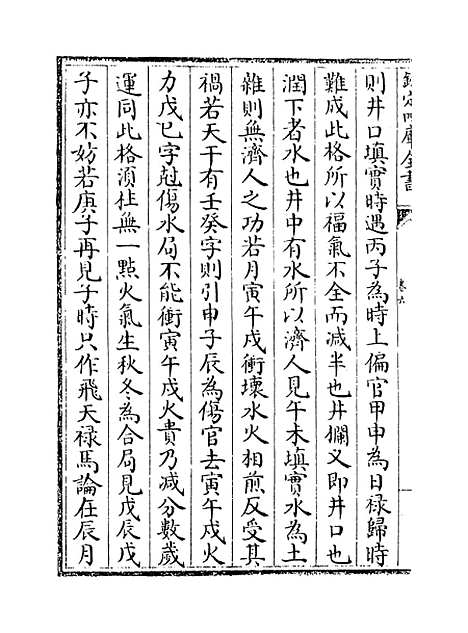 欽定四庫全書
卷六
則井口填實時遇丙子為時上偏官甲申為日禄歸時
難成此格所以福氣不全而减半也井欄义即井口也
潤下者水也井中有水所以濟人見午未填實水為土
雜則無濟人之功若月寅午戌衝壞水火相煎反受其
禍若天干有壬癸字則引申子辰為傷官去寅午戌火
力戊己字尅傷水局不能衝寅午戌火貴乃减分數歲
運同此格須柱無一點火氣生秋冬為合局見戊辰戊
子亦不妨若庚子再見子時只作飛天禄馬論在辰月